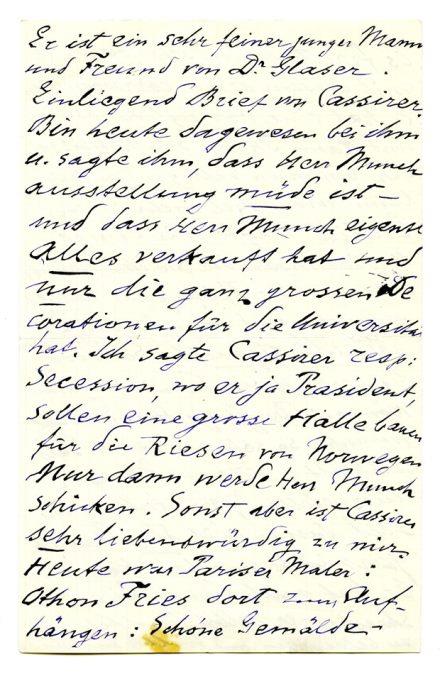 Er ist ein sehr feiner junger Mann
und Freund von Dr Glaser.
Einliegend Brief von Cassirer.
Bin heute dagewesen bei ihm
u. sagte ihm, dass Herr Munch
ausstellungmüde ist –
und dass Herr Munch eigentl
Alles verkauft hat und
nur die ganz grossen De
corationen für die Universität
hat. Ich sagte Cassirer resp:
Secession, wo er ja Präsident,
sollen eine grosse Halle bauen
für die Riesen von Norwegen
Nur dann werde Herr Munch
schicken. Sonst aber ist Cassirer
sehr liebenswürdig zu mir.
Heute war Pariser Maler:
Othon Fries dort zum Auf-
hängen: Schöne Gemälde –